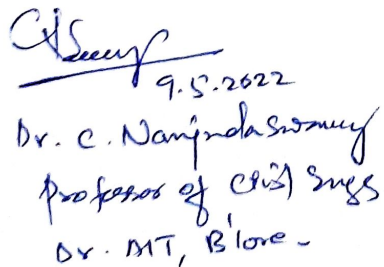 9.5.2022
Dr. C. Nanjundaswamy
Professor of Civil Engg
Dr. AIT, B'lore -